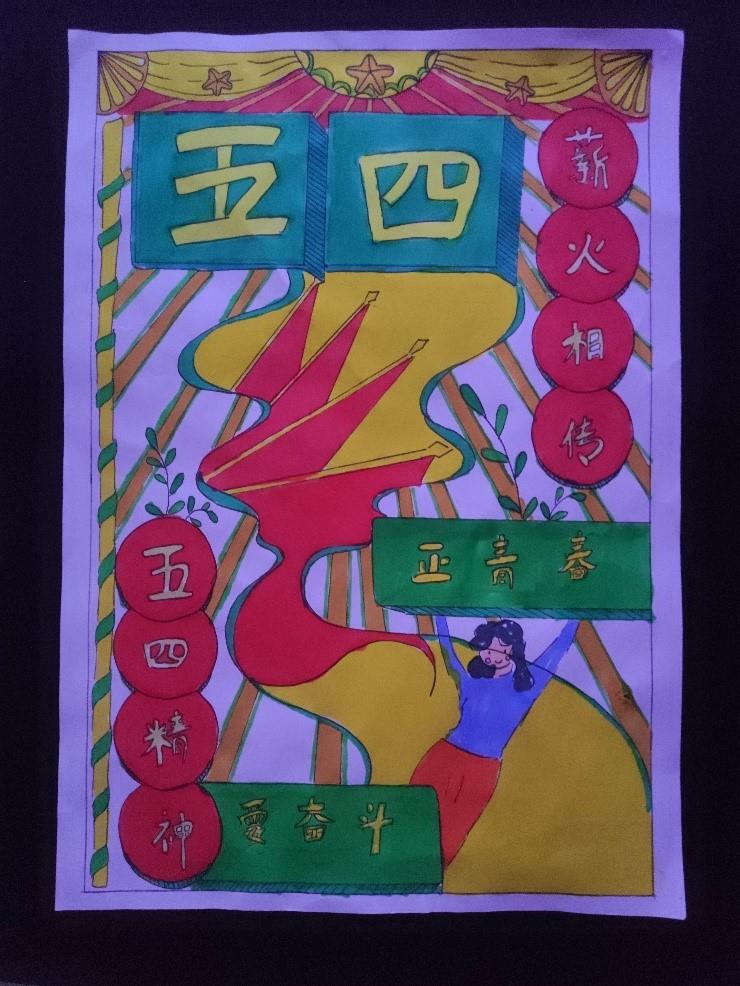 五四
薪火相传
正青春
五四精神
爱奋斗